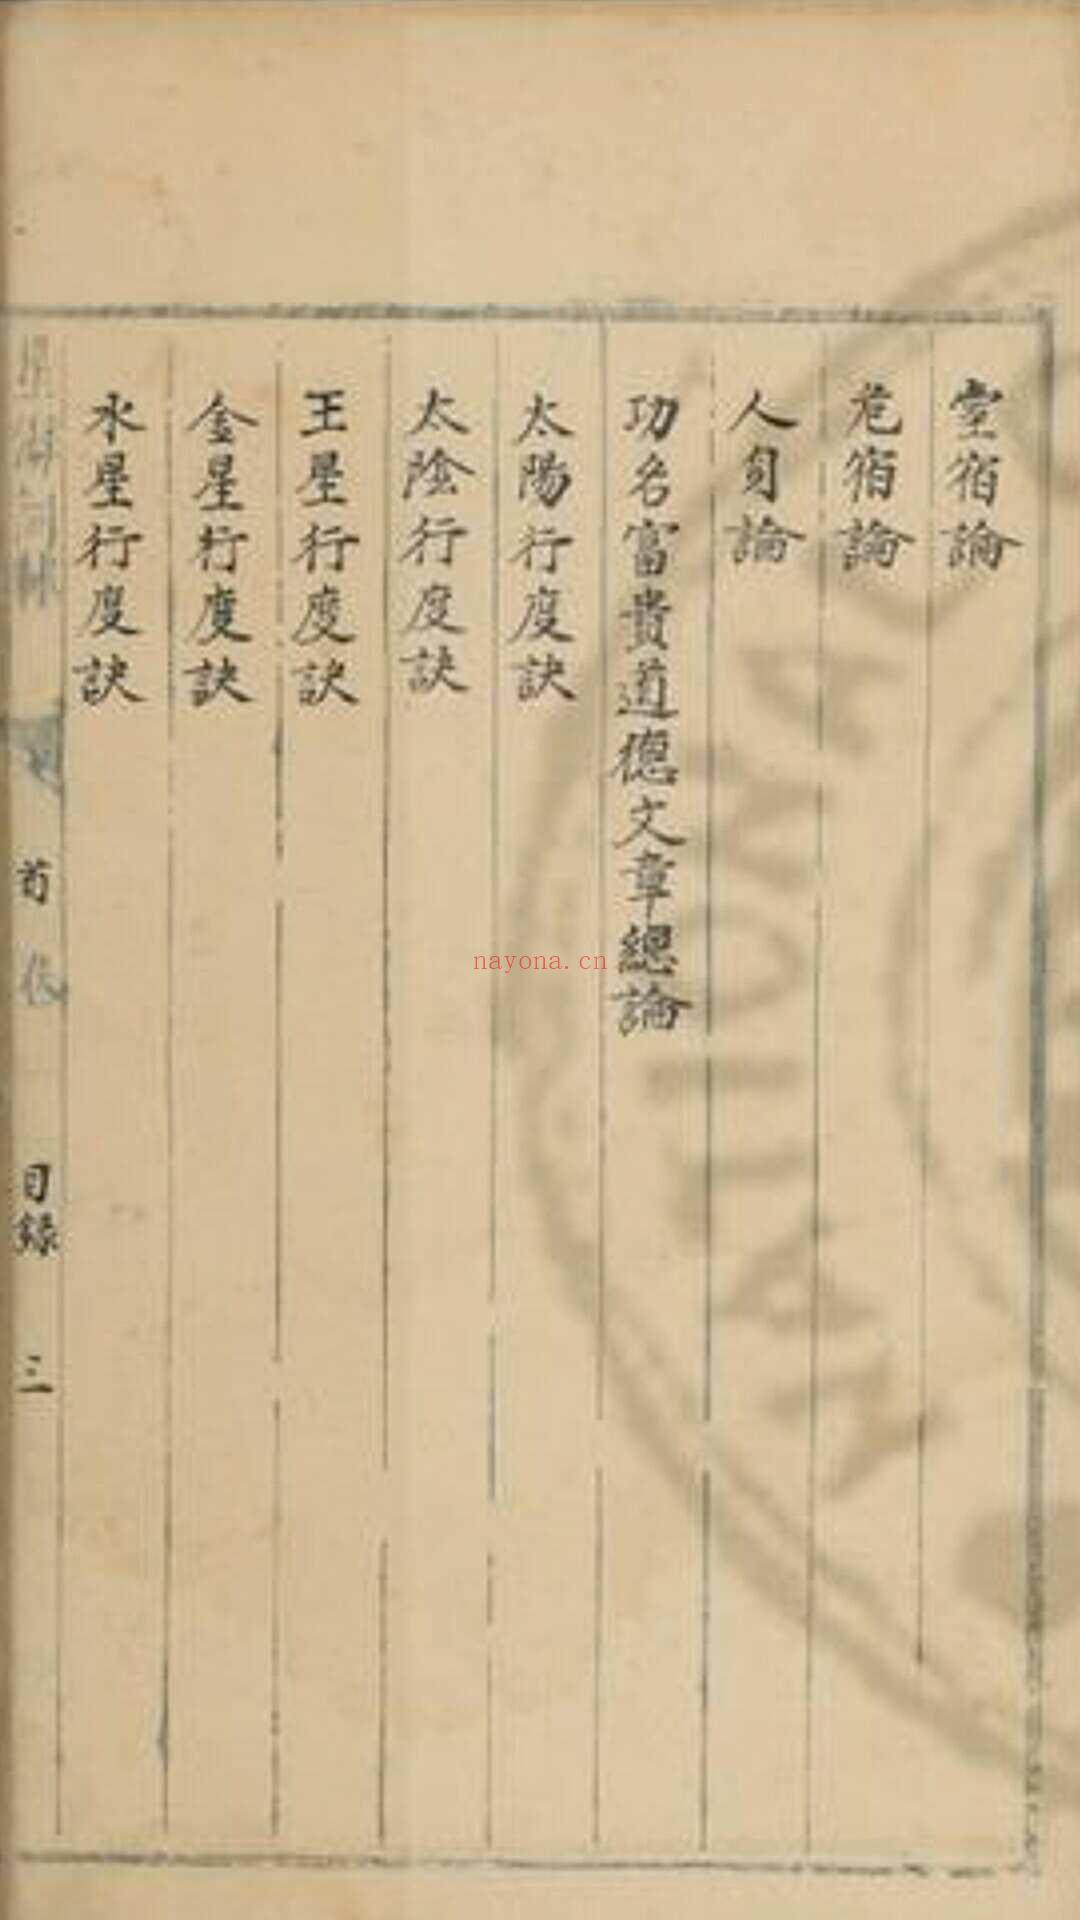 室宿論
危宿論
人員論
功名富貴道德文章總論
太陽行度訣
太陰行度訣
王星行度訣
金星行度訣
水星行度訣
目錄
三
nayona.cn